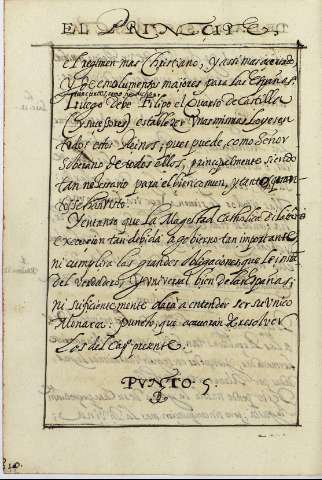 EL PRINCIPE.
el regimen mas Christiano, y assi mas acertado,
y de emolumentos maiores para las Españas.
Luego debe Filipo el quarto de Castilla
(y sucessores) establezer unas mismas leyes en
todos estos Reinos; pues puede, como Señor
Soberano de todos ellos, principalmente siendo
tan necesario para el bien comun, y tanto quan-
to se ha visto.
Y en tanto que la Magestad Catholica dilatare
execucion tan debida a gobierno tan importante,
ni cumplira las grandes obligaciones que le insta
del verdadero, y universal bien de las Españas;
ni suficientemente dara a entender ser su unico
Monarca: puncto, que acauaran de resolver
los del Cap.º presente.
PUNTO. 5.